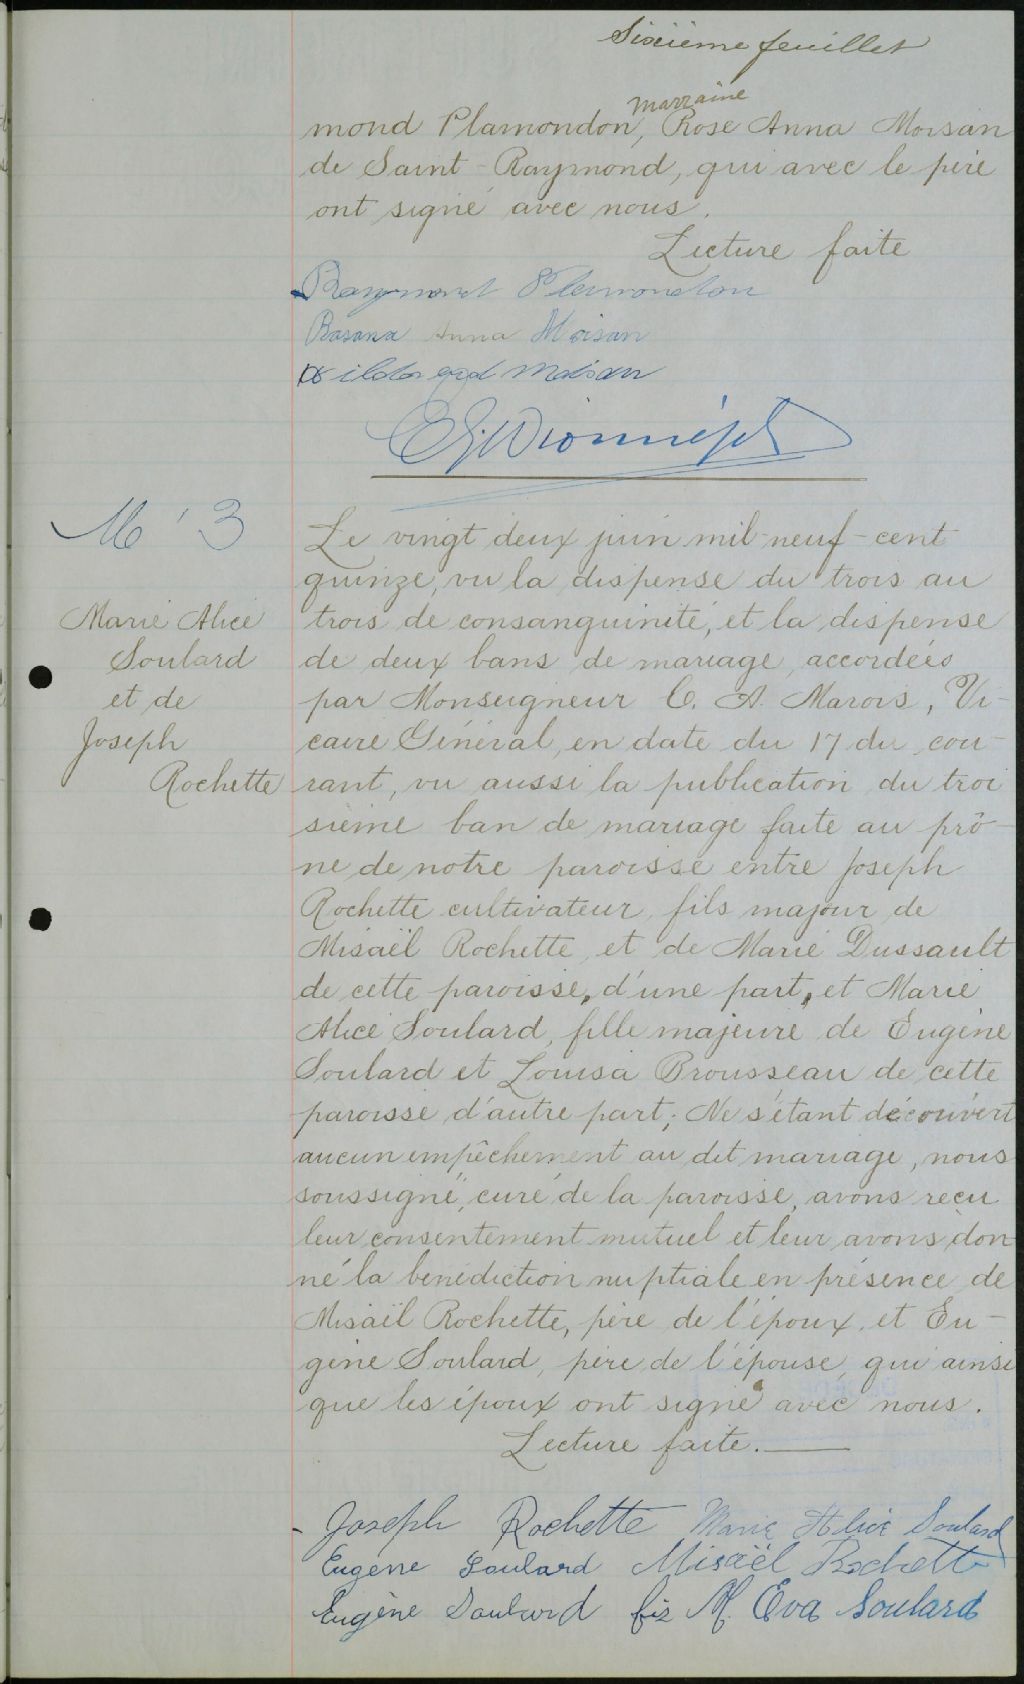 Sixième feuillet
marraine
mond Plamondon, Rose Anna Moisan
de Saint-Raymond, qui avec le père
ont signé avec nous.
Lecture faite
Raymond Plamondon
Rosana Anna Moisan
Wildaged Moisan
M 3
Marie Alice
Soulard
et de
Joseph
Rochette
Le vingt deux juin mil-neuf-cent
quinze, vu la dispense du trois au
trois de consanguinité, et la dispense
de deux bans de mariage, accordées
par Monseigneur C. A. Marois, Vi-
caire Général, en date du 17 du cou-
rant, vu aussi la publication du troi
sième ban de mariage faite au prô-
ne de notre paroisse entre Joseph
Rochette cultivateur, fils majeur de
Misaël Rochette, et de Marie Dussault
de cette paroisse, d'une part, et Marie
Alice Soulard, fille majeure de Eugène
Soulard et Louisa Brousseau de cette
paroisse d'autre part; Ne s'étant découvert
aucun empêchement au dit mariage, nous
soussigné, curé de la paroisse, avons reçu
leur consentement mutuel et leur avons don
né la bénédiction nuptiale en présence de
Misaël Rochette, père de l'époux, et Eu-
gène Soulard, père de l'épouse, qui ainsi
que les époux ont signé avec nous.
Lecture faite.
Joseph Rochette Marie Alice Soulard
Eugène Soulard Misaël Rochette
Eugène Soulard fis M. Eva Soulard